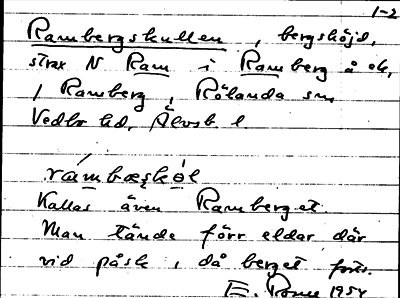 1-2
Rambergskullen, bergshöjd,
strax N Ram i Ramberg å ek,
/ Ramberg, Rölanda sn
Vedbo hd, Älvsb. l.
rámbæʂkòl
Kallas även Ramberget.
Man tände förr eldar där
vid påsk, då berget forts.
E. 1954